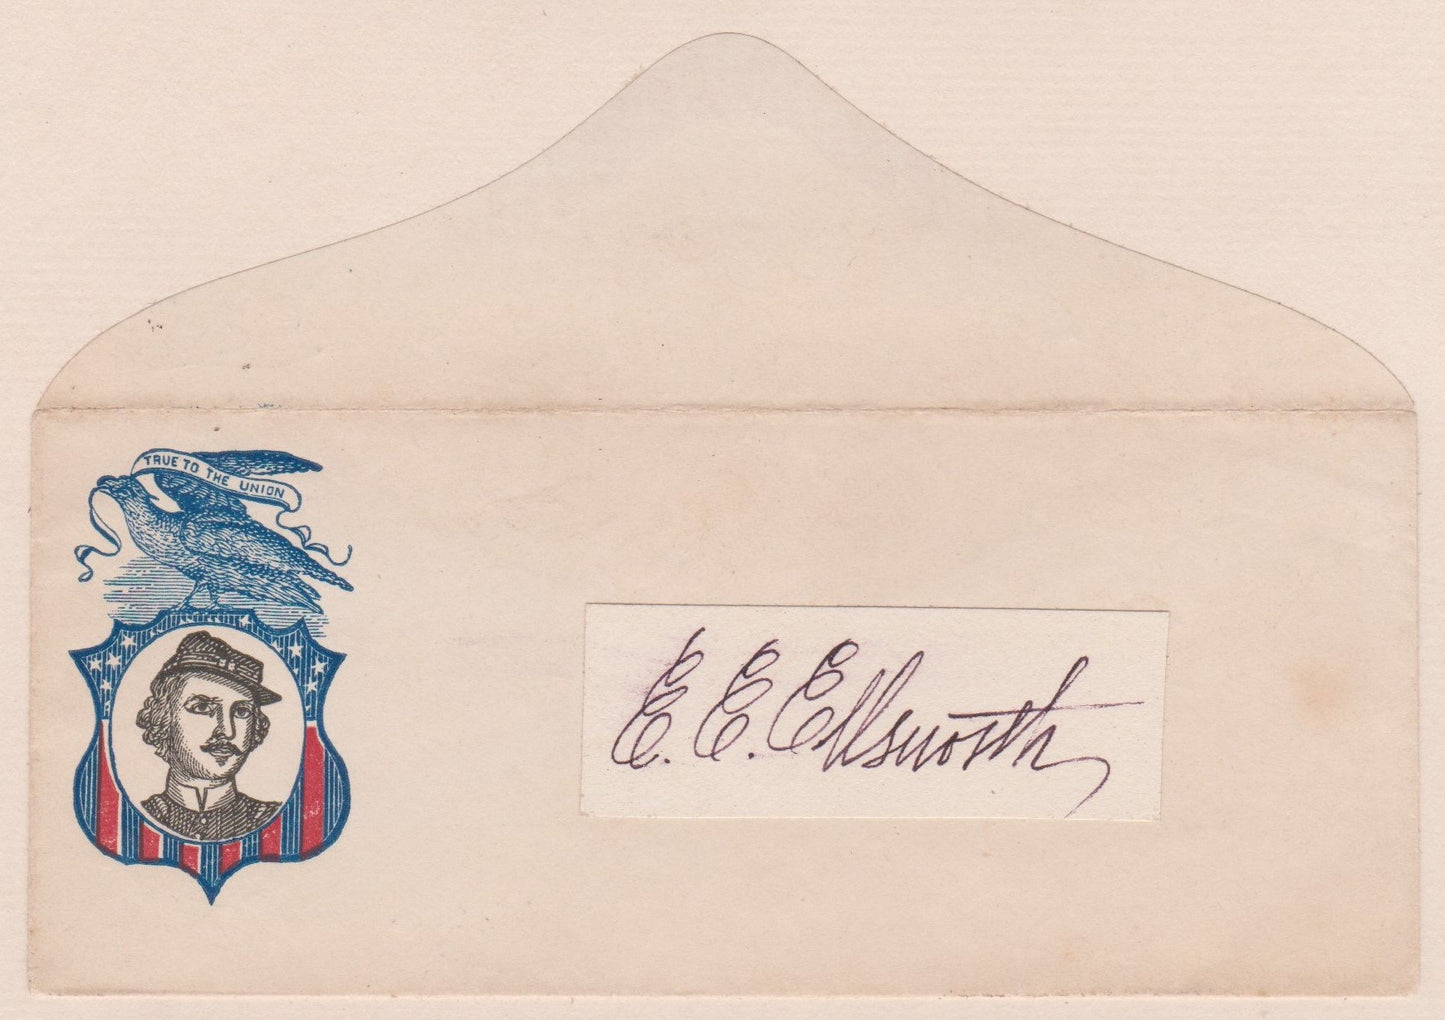 TRUE TO THE UNION
E. E. Ellsworth